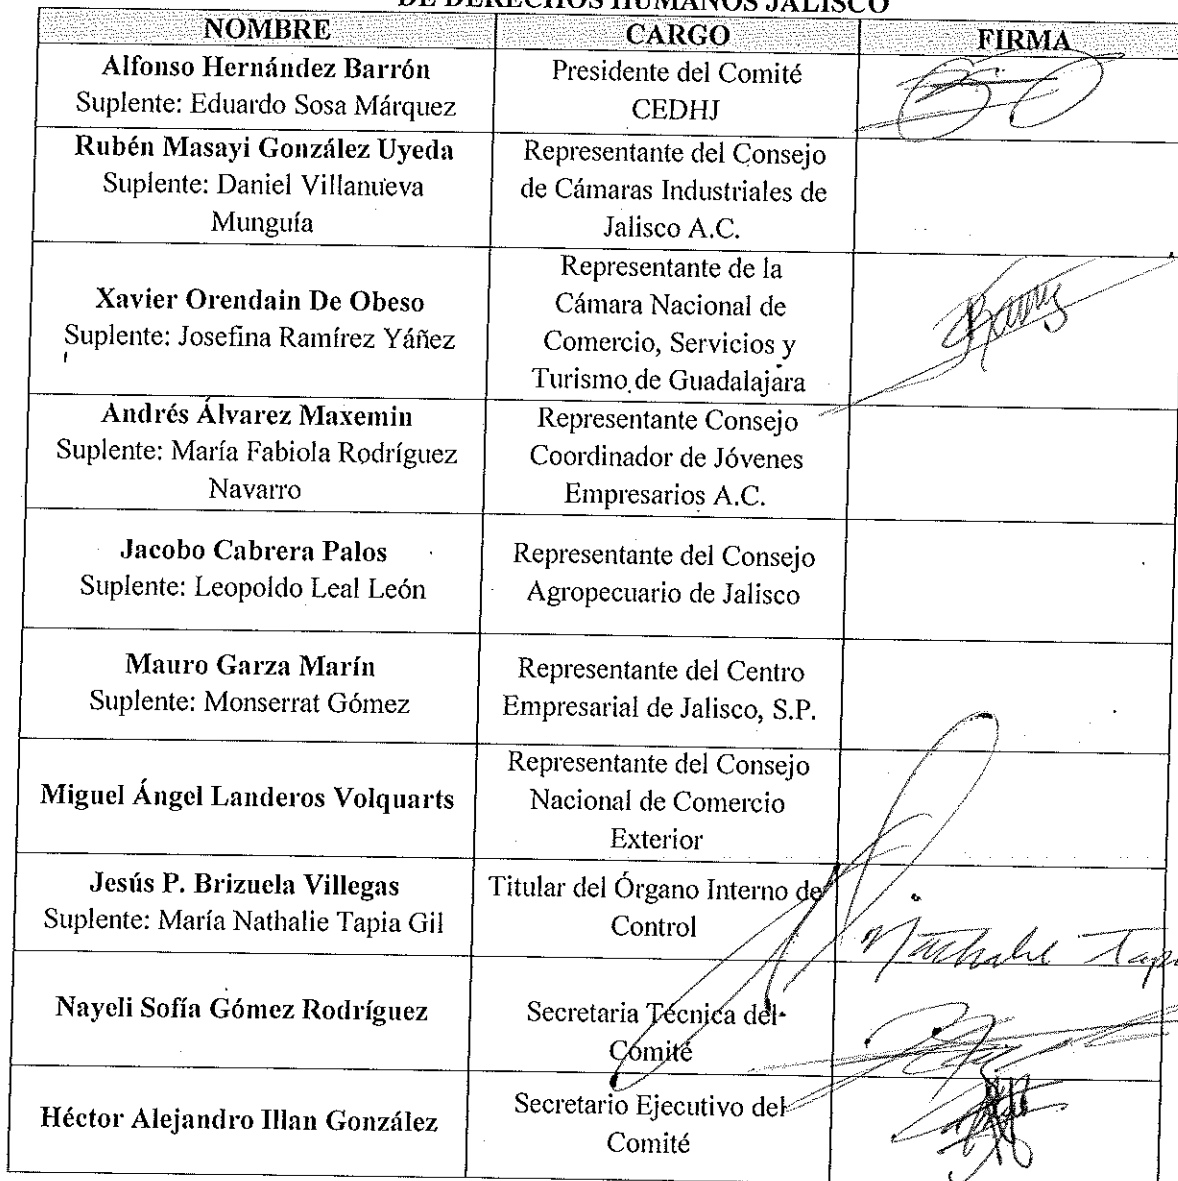 DE DERECHOS HUMANOS JALISCO
NOMBRE CARGO FIRMA
Alfonso Hernández Barrón
Suplente: Eduardo Sosa Márquez
Presidente del Comité
CEDHJ
Rubén Masayi González Uyeda
Suplente: Daniel Villanueva
Munguía
Representante del Consejo
de Cámaras Industriales de
Jalisco A.C.
Xavier Orendain De Obeso
Suplente: Josefina Ramírez Yáñez
Representante de la
Cámara Nacional de
Comercio, Servicios y
Turismo de Guadalajara
Andrés Álvarez Maxemin
Suplente: María Fabiola Rodríguez
Navarro
Representante Consejo
Coordinador de Jóvenes
Empresarios A.C.
Jacobo Cabrera Palos
Suplente: Leopoldo Leal León
Representante del Consejo
Agropecuario de Jalisco
Mauro Garza Marín
Suplente: Monserrat Gómez
Representante del Centro
Empresarial de Jalisco, S.P.
Miguel Ángel Landeros Volquarts
Representante del Consejo
Nacional de Comercio
Exterior
Jesús P. Brizuela Villegas
Suplente: María Nathalie Tapia Gil
Titular del Órgano Interno de
Control
Nathalie Tapi
Nayeli Sofía Gómez Rodríguez
Secretaria Técnica del
Comité
Héctor Alejandro Illan González
Secretario Ejecutivo del
Comité